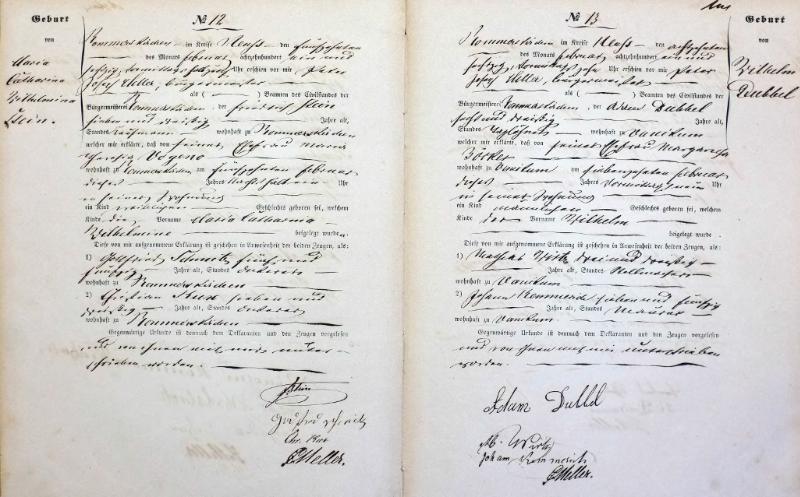 Geburt
von
Maria
Catharina
Wilhelmina
Stein.
№ 12
Rommerskirchen im Kreise Neuß den fünfzehnten
des Monats Februar achtzehnhundert ein und
sechszig, Uhr erschien vor mir Peter
Josef Heller, Bürgermeister
als ( ) Beamten des Civilstandes der
Bürgermeisterei Rommerskirchen, der Friedrich Stein
sieben und dreißig Jahre alt,
Standes Kaufmann wohnhaft zu Rommerskirchen
welcher mir erklärte, daß von seiner Ehefrau Maria
wohnhaft zu Rommerskirchen am fünfzehnten Februar
dieses Jahres Uhr
in seiner Wohnung
ein Kind weiblichen Geschlechts geboren sei, welchem
Kinde die Vorname Maria Catharina
Wilhelmine beigelegt wurde.
Diese von mir aufgenommene Erklärung ist geschehen in Anwesenheit der beiden Zeugen, als:
1) Gottfried Schmitz fünf und
fünfzig Jahre alt, Standes
wohnhaft zu
Rommerskirchen
2) Christian sieben und
Jahre alt, Standes
wohnhaft zu Rommerskirchen
Gegenwärtige Urkunde ist demnach dem Declaranten und den Zeugen vorgelesen
und von ihnen und mir unter-
schrieben worden.
Stein
PHeller.
№ 13
Rommerskirchen im Kreise Neuß den achtzehnten
des Monats Februar achtzehnhundert ein und
sechszig, Vormittags zehn Uhr erschien vor mir Peter
Josef Heller, Bürgermeister
als ( ) Beamten des Civilstandes der
Bürgermeisterei Rommerskirchen, der Adam Dubbel
sechs und dreißig Jahre alt,
Standes Taglöhner wohnhaft zu Vanikum
welcher mir erklärte, daß von seiner Ehefrau Margaretha
wohnhaft zu Vanikum am siebenzehnten Februar
dieses Jahres Vormittags neun Uhr
in seiner Wohnung
ein Kind männlichen Geschlechts geboren sei, welchem
Kinde der Vorname Wilhelm
beigelegt wurde
Diese von mir aufgenommene Erklärung ist geschehen in Anwesenheit der beiden Zeugen, als:
1) Mathias Wirtz drei und dreißig
Jahre alt, Standes
wohnhaft zu Vanikum
2) Johann sieben und fünfzig
Jahre alt, Standes Maurer
wohnhaft zu Vanikum
Gegenwärtige Urkunde ist demnach dem Declaranten und den Zeugen vorgelesen
und von ihnen und mir unterschrieben
worden.
Adam
M. Wirtz
Johann
PHeller.
Geburt
von
Wilhelm
Dubbel